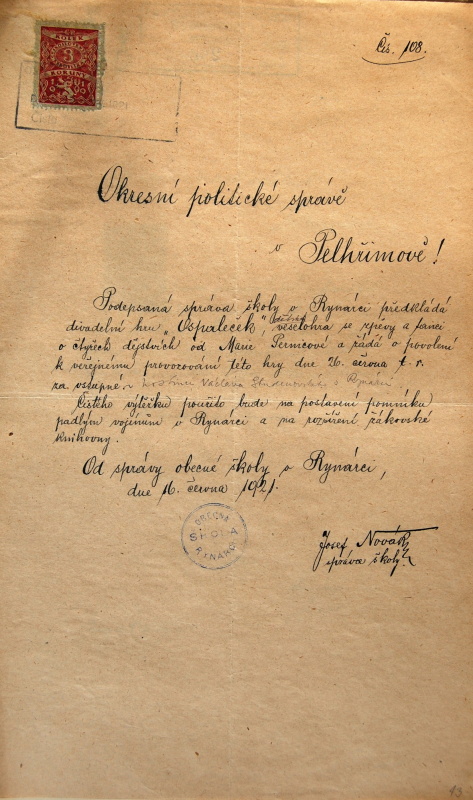 Čís. 108.
KOLEK
3
KORUNY
Okresní politické správě
v Pelhřimově!
Podepsaná správa školy v Rynárci předkládá
divadelní hru „Ospaleček“, dětská veselohra se zpěvy a tanci
o čtyřech dějstvích od Marie a žádá o povolení
k veřejnému provozování této hry dne 26. června t. r.
za vstupné v hostinci Václava v Rynárci.
Čistého výtěžku použito bude na postavení pomníku
padlým vojínům v Rynárci a na rozšíření žákovské
knihovny.
Od správy obecné školy v Rynárci,
dne 16. června 1921.
OBECNÁ
ŠKOLA
Josef Novák
správce školy
43